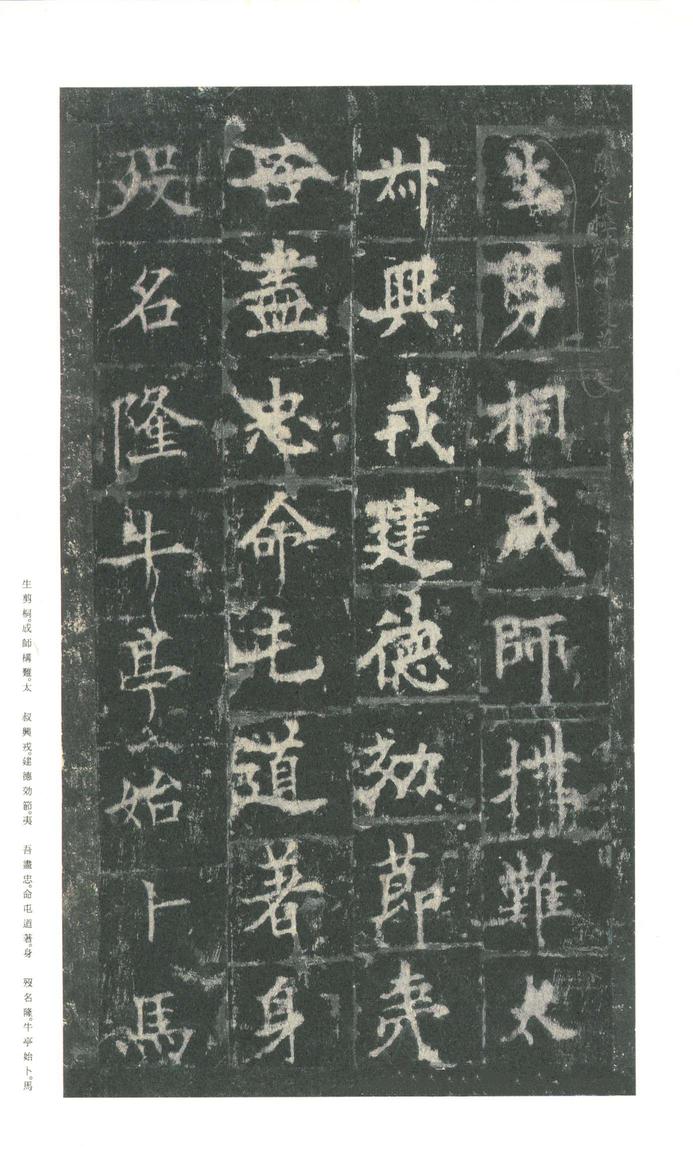 生剪桐成師構難太
叔興戎建德効節夷
吾盡忠命屯道著身
歿名隆牛亭始卜馬
生剪桐。成師構難。太　叔興戎。建德効節。夷　吾盡忠。命屯道著。身　歿名隆。牛亭始卜。馬